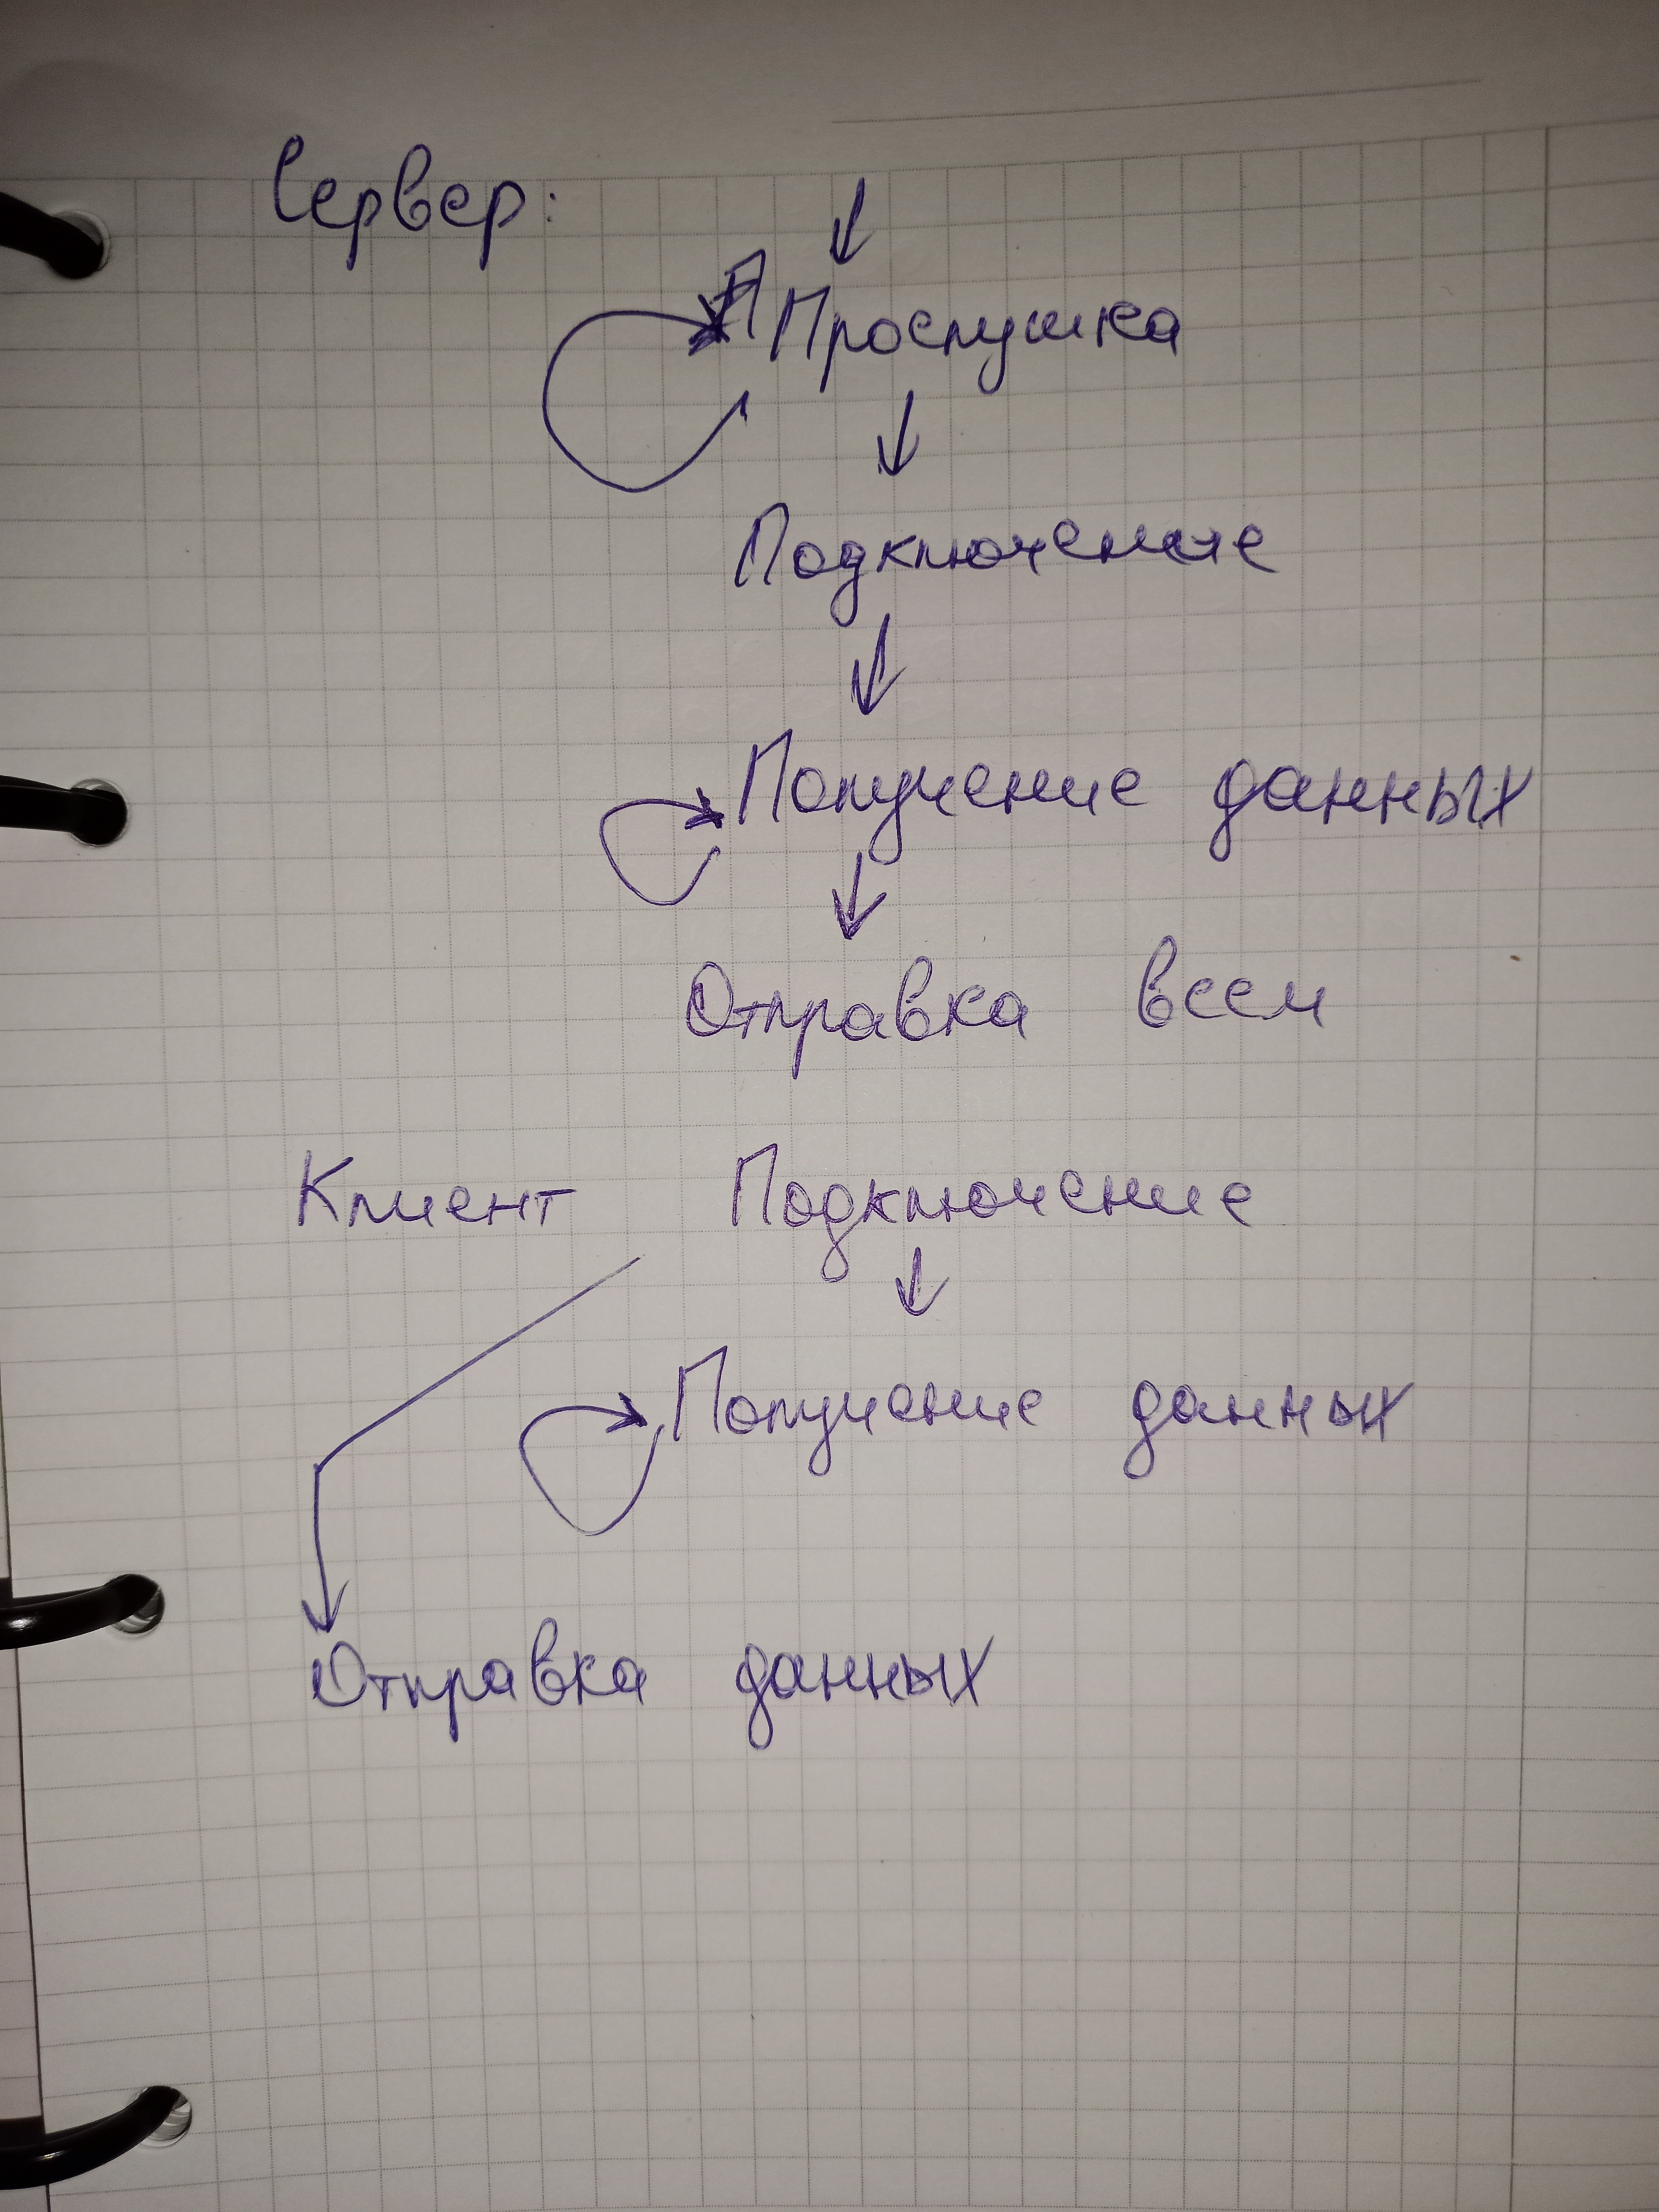 Сервер:
Прослушка
Подключение
Получение данных
Отправка всем
Клиент Подключение
Получение данных
Отправка данных